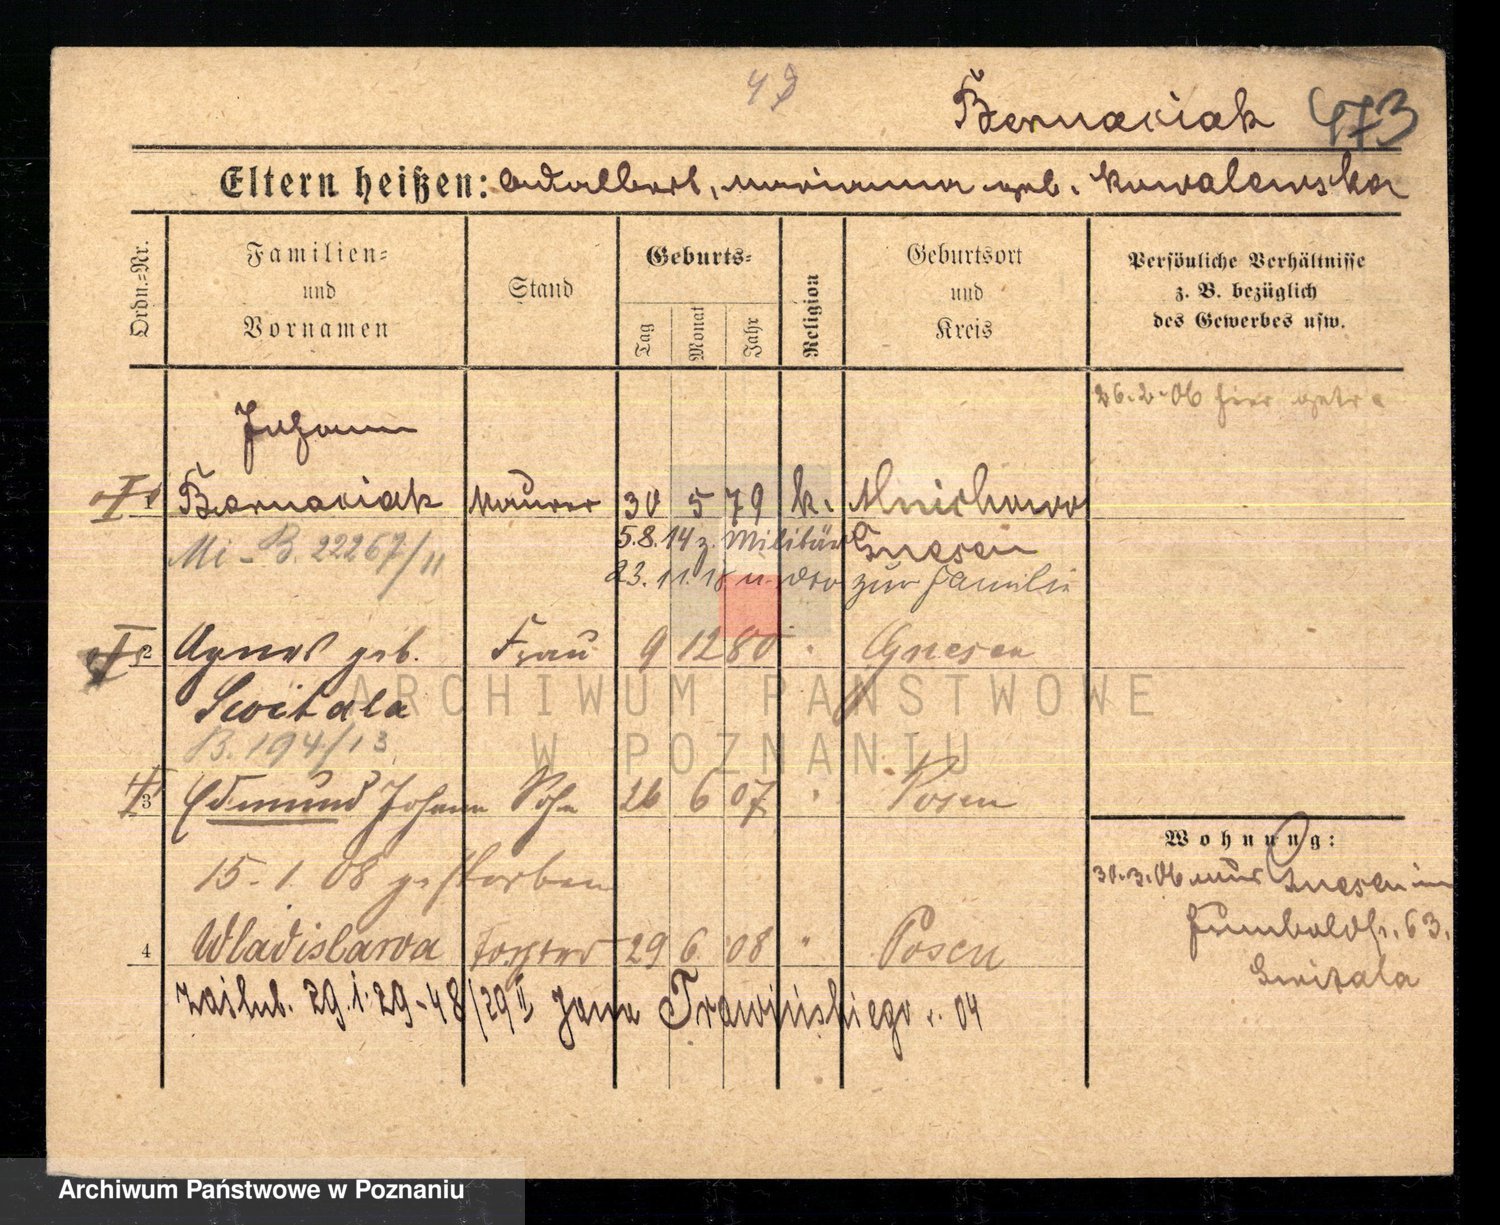 Bernaciak 473
Eltern heißen: Adalbert, Marianna geb. Kowalewska
Ordn.-Nr.
Familien- und Vornamen
Stand
Geburts-
Tag Monat Jahr
Religion
Geburtsort und Kreis
Persönliche Verhältnisse
z. B. bezüglich
des Gewerbes usw.
26.2.06 hier
Johann
1 Bernaciak Maurer 30 5 79 k. Mnichowo
Mi-B. 22267/11 5.8.14 z. Militär Gnesen
23.11.18 zur Familie
2 Agnes geb. Frau 9 12 80 " Gnesen
Switala
B. 194/13
3 Edmund Johann Sohn 26 6 07 " Posen
15.1.08 gestorben
4 Wladislawa Tochter 29 6 08 " Posen
zaślub. 29.1.29-48/29 II Jana Trawińskiego r. 04
Wohnung:
30.3.06 aus Gnesen
63.
Switala
ARCHIWUM PAŃSTWOWE
W POZNANIU
Archiwum Państwowe w Poznaniu